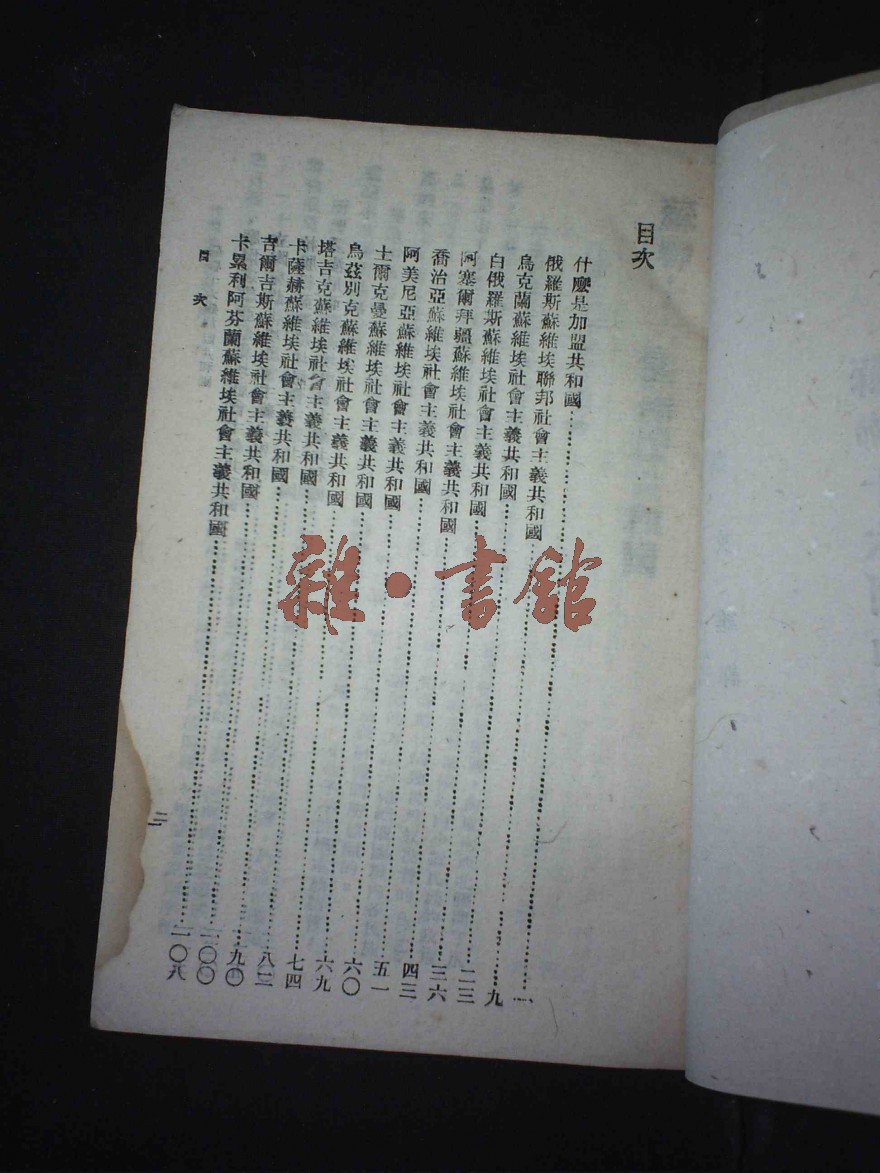 目次
什麼是加盟共和國……一
俄羅斯蘇維埃聯邦社會主義共和國……九
烏克蘭蘇維埃社會主義共和國……二三
白俄羅斯蘇維埃社會主義共和國……三六
阿塞爾拜疆蘇維埃社會主義共和國……四三
喬治亞蘇維埃社會主義共和國……五一
阿美尼亞蘇維埃社會主義共和國……六〇
土爾克曼蘇維埃社會主義共和國……六九
烏茲別克蘇維埃社會主義共和國……七四
塔吉克蘇維埃社會主義共和國……八三
卡薩赫蘇維埃社會主義共和國……九〇
吉爾吉斯蘇維埃社會主義共和國……一〇〇
卡累利阿芬蘭蘇維埃社會主義共和國……一〇八
目次
雜·書館